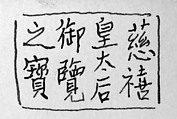 慈禧
皇太后
御覽
之寶